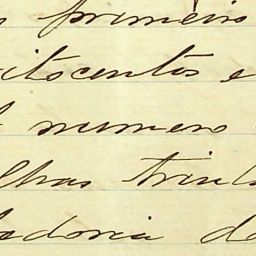 primeiro
itocentos e
numero
lhas trint
adoria d